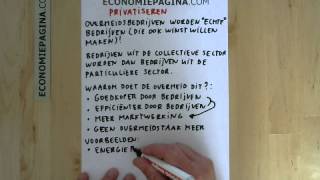 ECONOMIEPAGINA.COM
ECONOMIEPAGINA.COM!
PRIVATISEREN
OVERHEIDSBEDRIJVEN WORDEN "ECHTE"
BEDRIJVEN (DIE OOK WINST WILLEN
MAKEN)!
BEDRIJVEN UIT DE COLLECTIEVE SECTOR
WORDEN DAN BEDRIJVEN UIT DE
PARTICULIERE SECTOR.
WAAROM DOET DE OVERHEID DIT?:
• GOEDKOPER DOOR BEDRIJVEN
• EFFICIËNTER DOOR BEDRIJVEN
• MEER MARKTWERKING
• GEEN OVERHEIDSTAAK MEER
VOORBEELDEN:
• ENERGIE